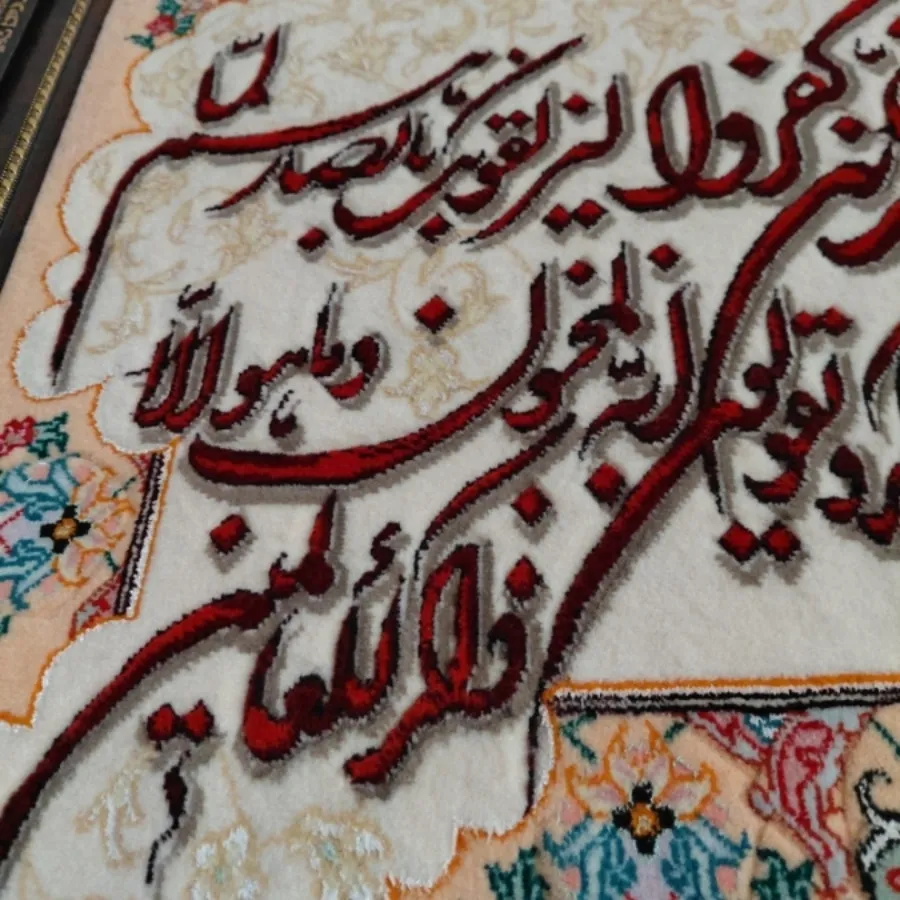 كفروا ليزلقونك بابصارهم لمّا
ويقولون انه لمجنون وما هو الّا
ذكر للعالمين